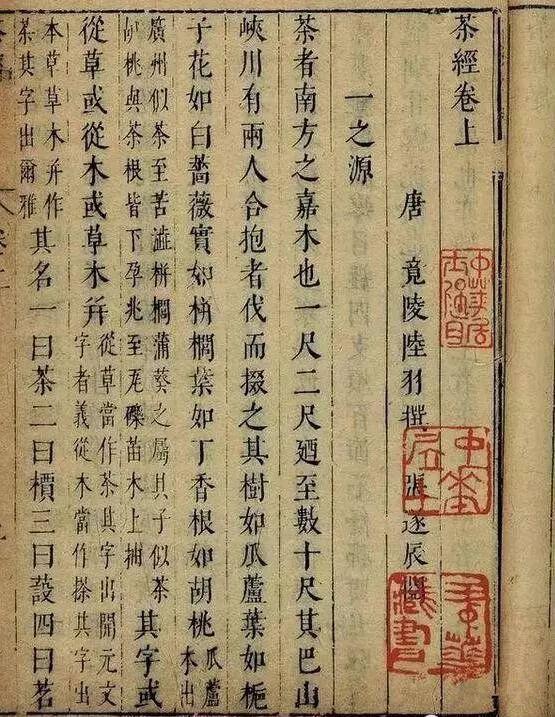 茶經卷上
唐 竟陵陸羽撰 張遂辰閱
一之源
茶者南方之嘉木也一尺二尺廼至數十尺其巴山
峽川有兩人合抱者伐而掇之其樹如瓜蘆葉如梔
子花如白薔薇實如栟櫚葉如丁香根如胡桃瓜蘆木出
廣州似茶至苦澁栟櫚蒲葵之屬其子似茶胡桃與茶根皆下孕兆至瓦礫苗木上抽其字或
從草或從木或草木幷從草當作茶其字出開元文字者義從木當作搽其字出
本草草木幷作茶其字出爾雅其名一曰茶二曰檟三曰蔎四曰茗
中華